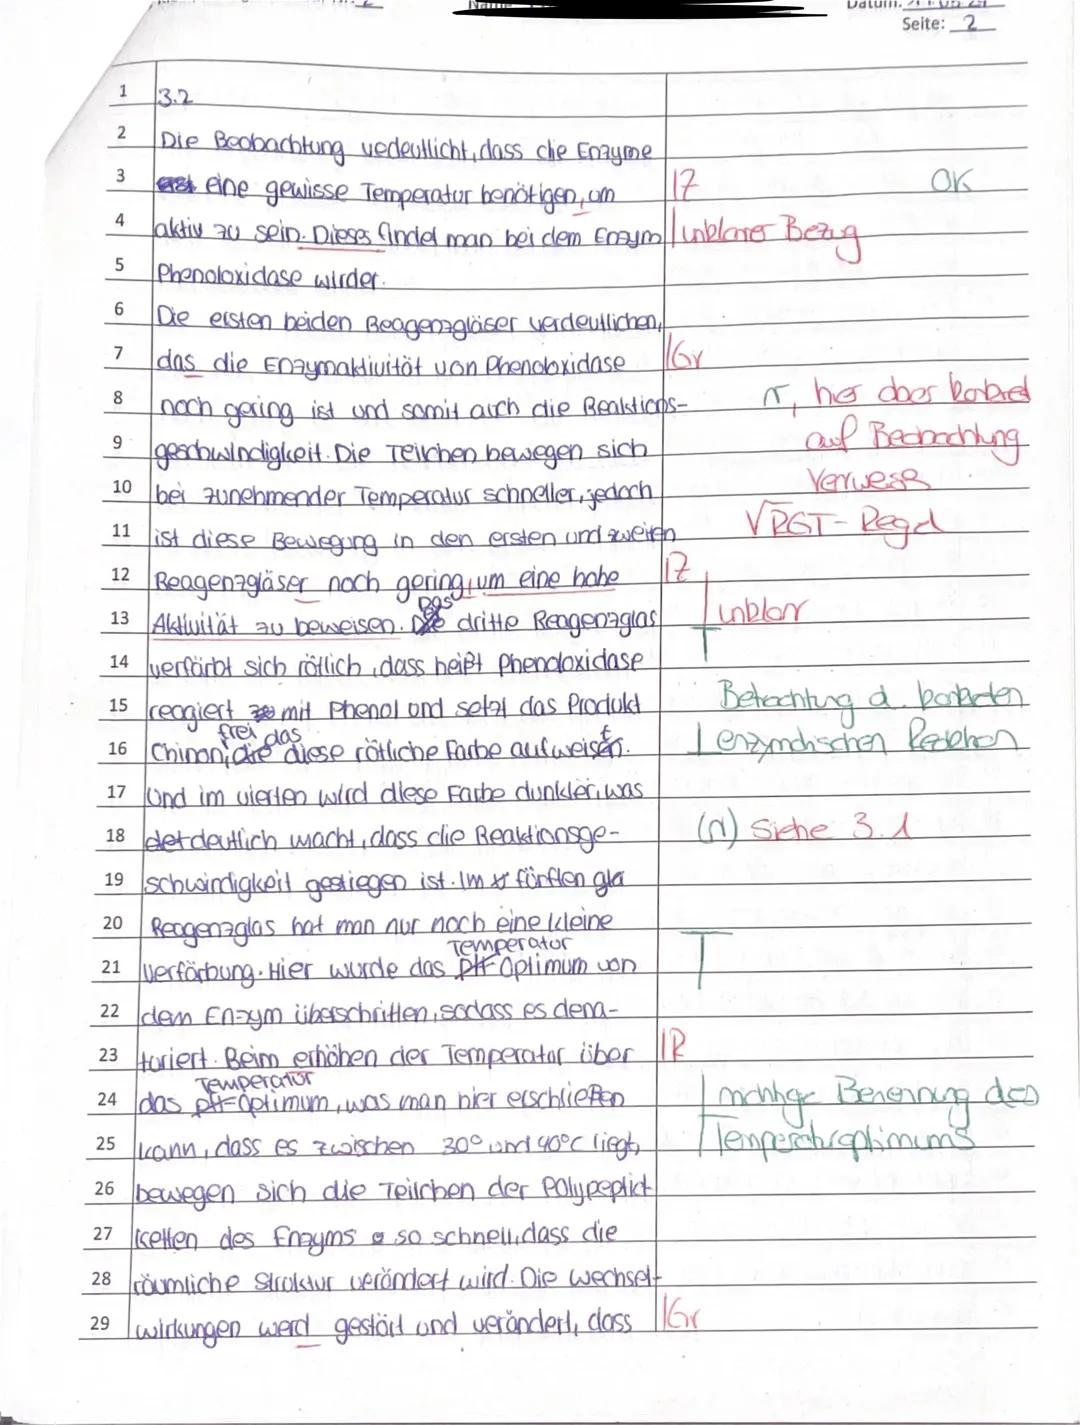 Seite: 2
1 3.2
2 Die Beobachtung verdeutlicht, dass die Enzyme
3 eine gewisse Temperatur benötigen, um
IZ OK
4 aktiv zu sein. Dieses findet man bei dem Enzym
unklarer Bezug
5 Phenoloxidase wieder.
6 Die ersten beiden Reagenzgläser verdeutlichen,
7 das die Enzymaktivität von Phenoloxidase
IGr
8 noch gering ist und somit auch die Reaktions-
hier aber konkret
9 geschwindigkeit. Die Teilchen bewegen sich
auf Beobachtung
10 bei zunehmender Temperatur schneller, jedoch
11 ist diese Bewegung in den ersten und zweiten
√RGT-Regel
12 Reagenzgläser noch gering, um eine hohe
IZ
13 Aktivität zu beweisen. Das dritte Reagenzglas
unklar
14 verfärbt sich rötlich, dass heißt Phenoloxidase
15 reagiert mit Phenol und setzt das Produkt
Betrachtung d. konkreten
16 Chinon frei, das diese rötliche Farbe aufweist.
enzymatischen Reaktion
17 Und im vierten wird diese Farbe dunkler, was
18 deutlich macht, dass die Reaktionsge-
Siehe 3.1
19 schwindigkeit gestiegen ist. Im fünften gla
20 Reagenzglas hat man nur noch eine kleine
21 Verfärbung. Hier wurde das Temperatur Optimum von
22 dem Enzym überschritten, sodass es dena-
23 turiert. Beim erhöhen der Temperatur über
IR
24 das Temperatur Optimum, was man hier erschließen
richtige Benennung des
25 kann, dass es zwischen 30° und 40°C liegt,
Temperaturoptimums
26 bewegen sich die Teilchen der Polypeptid
27 ketten des Enzyms so schnell, dass die
28 räumliche Struktur verändert wird. Die Wechsel-
29 wirkungen werd gestört und verändert, dass
IGr